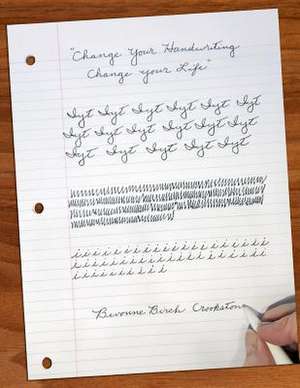 "Change Your Handwriting
Change your Life"
Iyt Iyt Iyt Iyt Iyt Iyt
Iyt Iyt Iyt Iyt Iyt Iyt
Iyt Iyt Iyt Iyt Iyt
Bevonne Birch Crookston